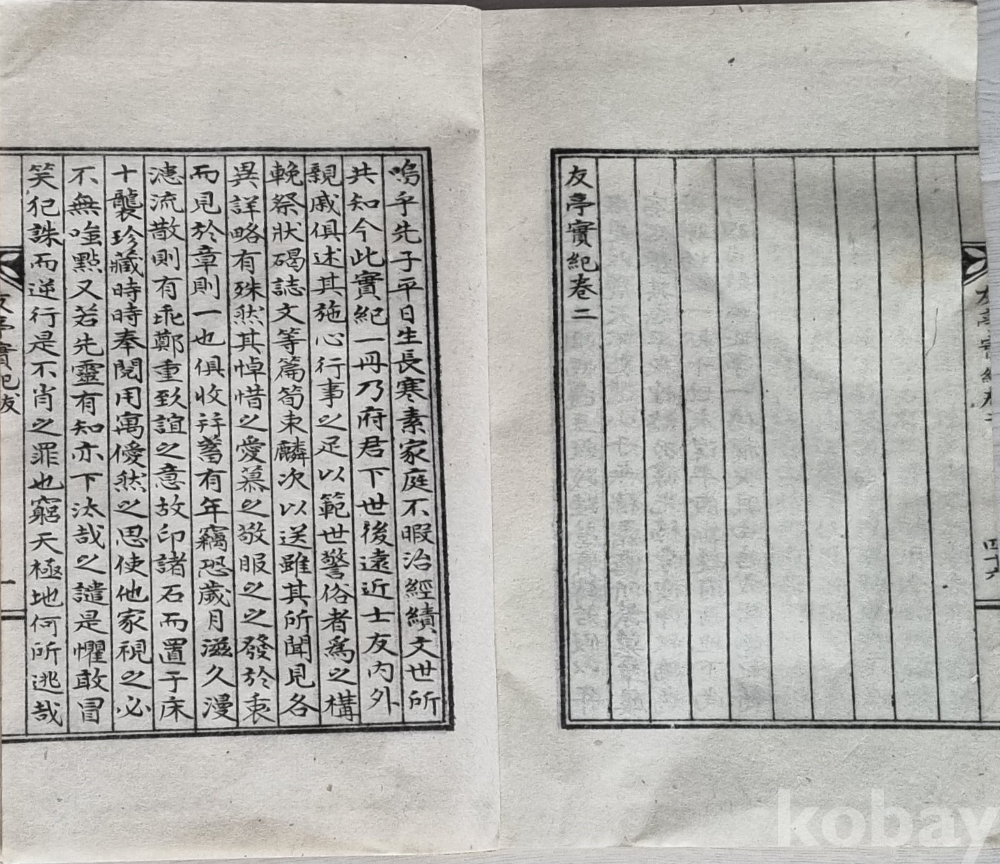 友亭實紀卷二
四十六
嗚乎先子平日生長寒素家庭不暇治經績文世所
共知今此實紀一冊乃府君下世後遠近士友內外
親戚俱述其施心行事之足以範世警俗者爲之構
輓祭狀碣誌文等篇筍束麟次以送雖其所聞見各
異詳略有殊然其悼惜之愛慕之敬服之之發於衷
而見於章則一也俱收並蓄有年竊恐歲月滋久漫
漶流散則有乖鄭重致誼之意故印諸石而置于床
十襲珍藏時時奉閱用寓僾然之思使他家視之必
不無嗤點又若先靈有知亦下汰哉之譴是懼敢冒
笑犯誅而逆行是不肖之罪也窮天極地何所逃哉
友亭實紀跋
一
kobay